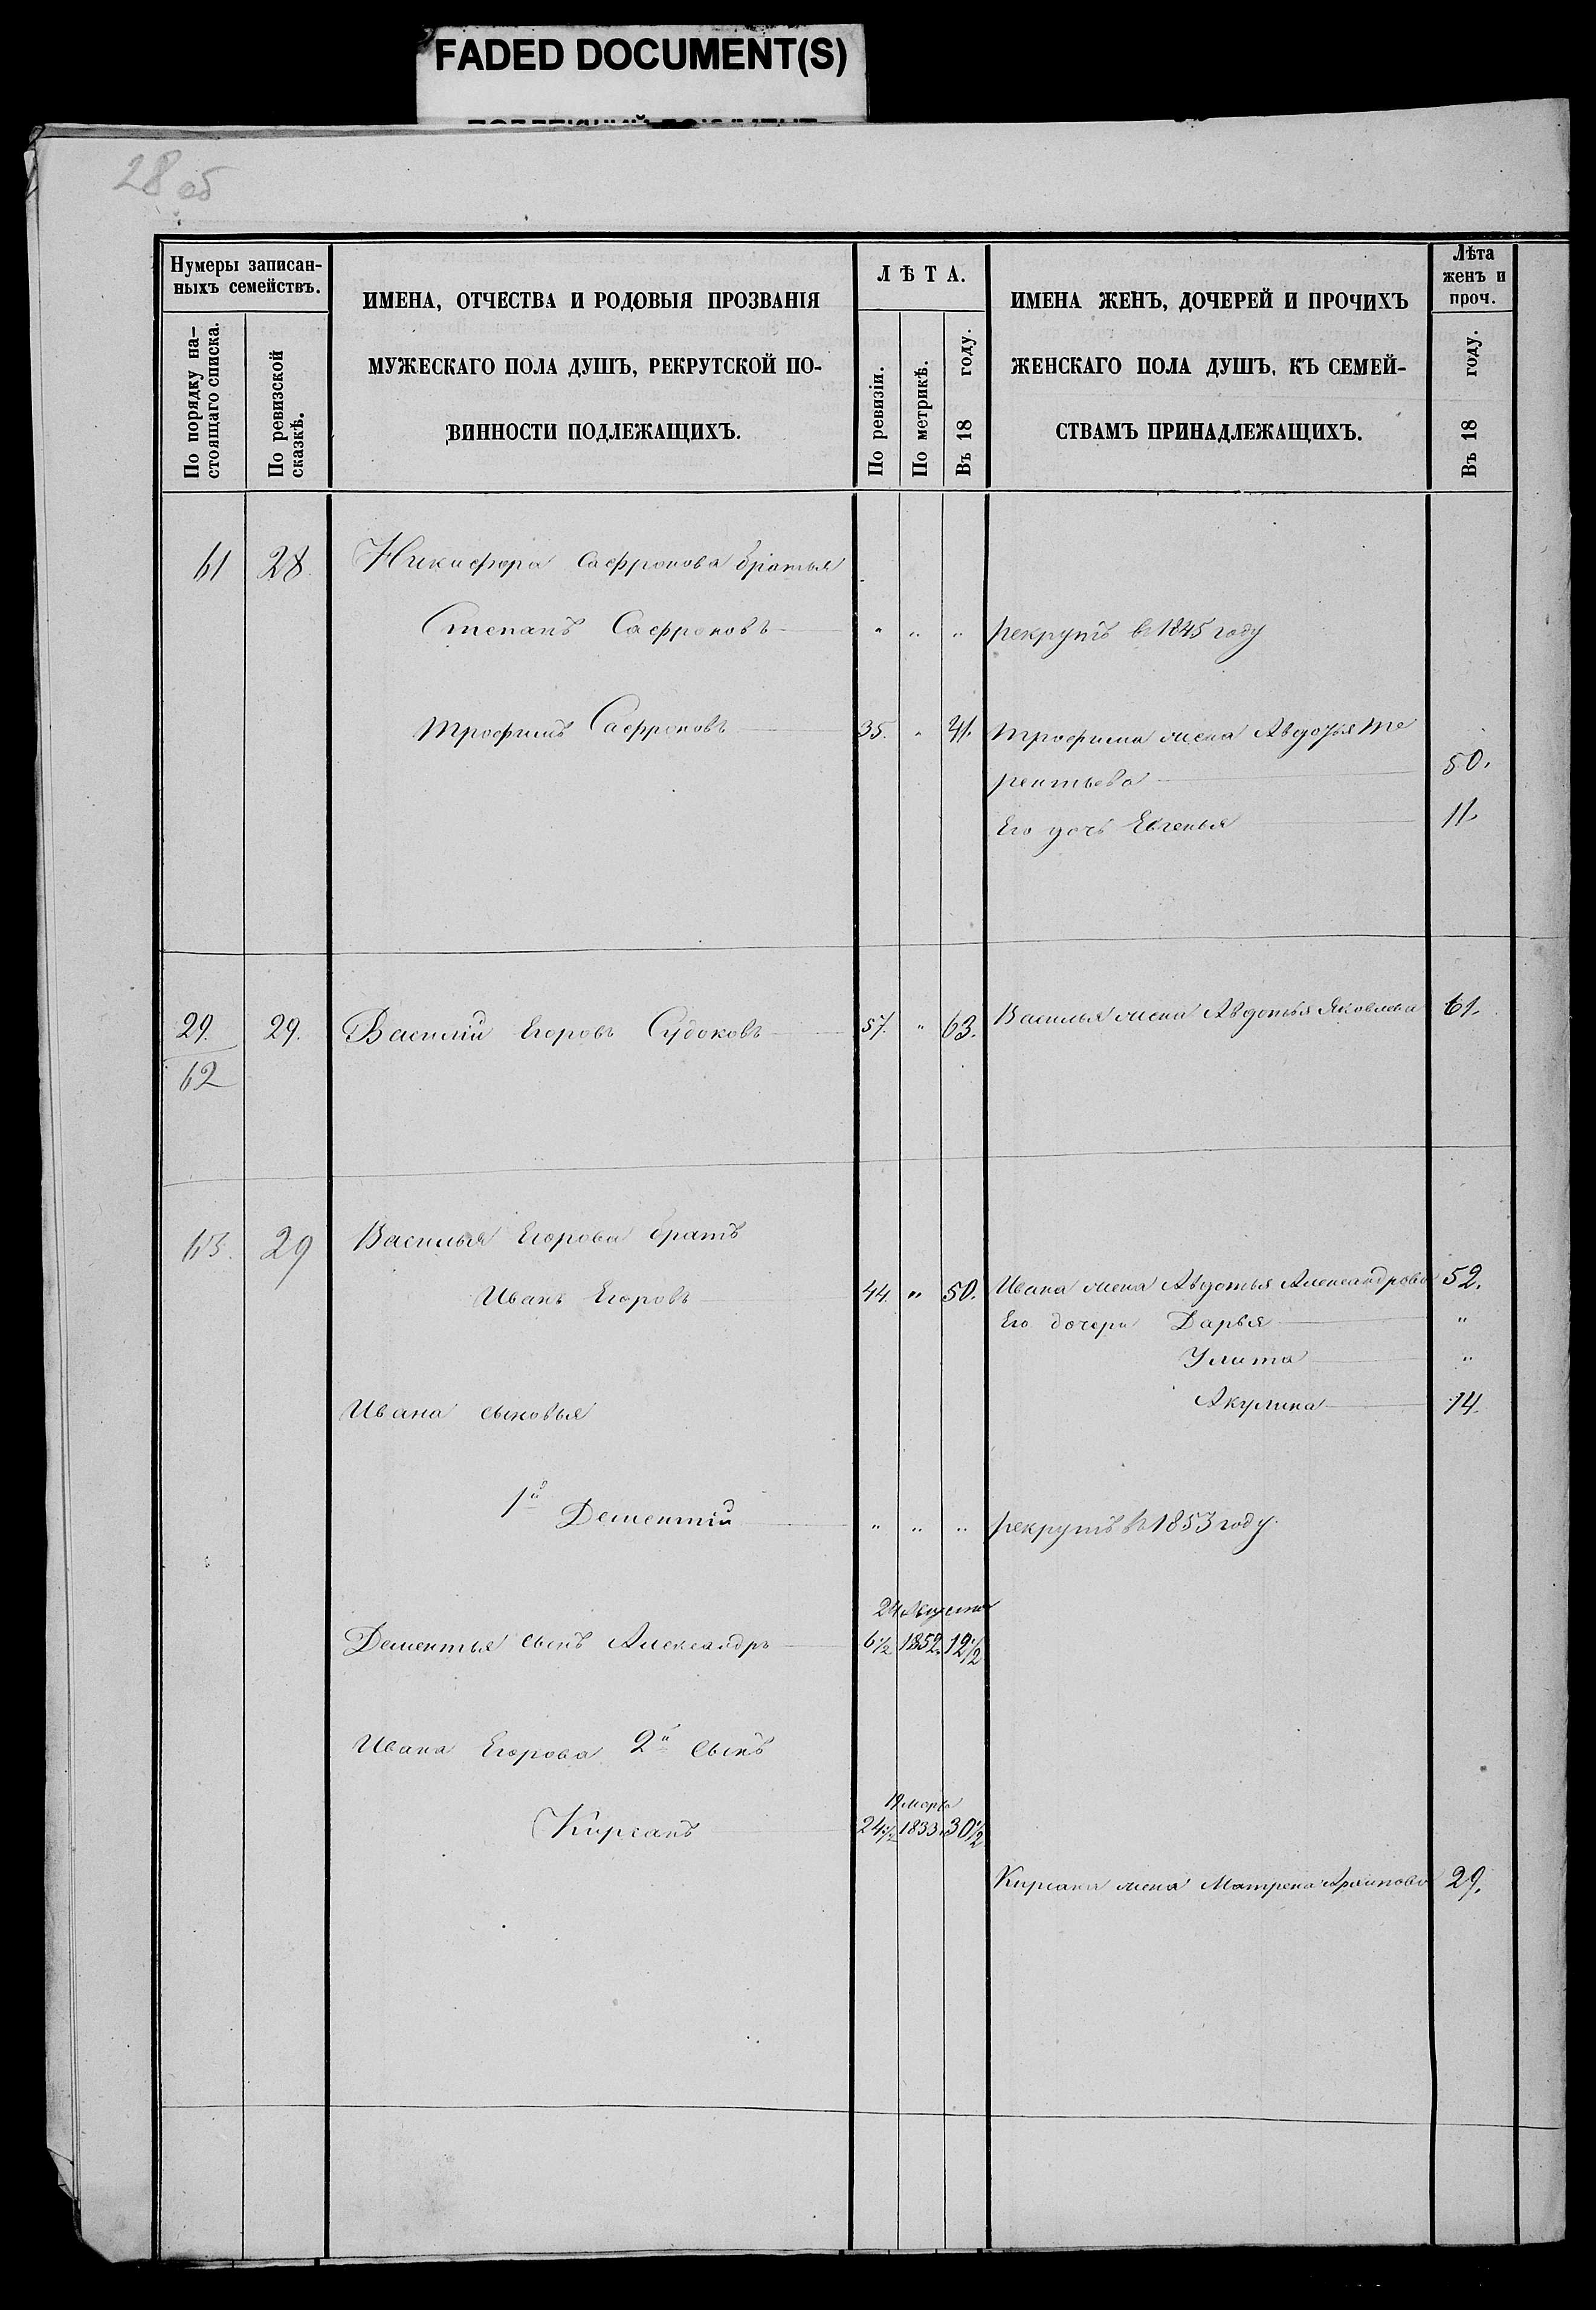 FADED DOCUMENT(S)
28 об
Нумеры записан-
ныхъ семействъ.
По порядку на-
стоящаго списка.
По ревизской
сказкѣ.
ИМЕНА, ОТЧЕСТВА И РОДОВЫЯ ПРОЗВАНІЯ
МУЖЕСКАГО ПОЛА ДУШЪ, РЕКРУТСКОЙ ПО-
ВИННОСТИ ПОДЛЕЖАЩИХЪ.
ЛѢТА.
По ревизіи.
По метрикѣ.
Въ 18 году.
ИМЕНА ЖЕНЪ, ДОЧЕРЕЙ И ПРОЧИХЪ
ЖЕНСКАГО ПОЛА ДУШЪ, КЪ СЕМЕЙ-
СТВАМЪ ПРИНАДЛЕЖАЩИХЪ.
Лѣта
женъ и
проч.
Въ 18 году.
61 28 Никифора Сафронова братья
Степанъ Сафроновъ " " " рекрутъ в 1845 году
Трофимъ Сафроновъ 35. " 41. Трофима жена Авдотья Те
рентьева 50.
Его дочь Евгенья 11.
29. 29. Василій Егоровъ Судоковъ 57. " 63. Василья жена Авдотья Яковлева 61.
62
63. 29 Василья Егорова братъ
Иванъ Егоровъ 44. " 50. Ивана жена Авдотья Александрова 52.
Его дочери Дарья "
Улита "
Ивана сыновья Акулина 14.
1й Дементій " " " рекрутъ въ 1853 году.
24 Августа
Дементья сынъ Александръ 6 1/2 1852. 12 1/2
Ивана Егорова 2й сынъ
19 марта
Кирсанъ 24 1/2 1833. 30 1/2
Кирсана жена Матрена Архипова 29.